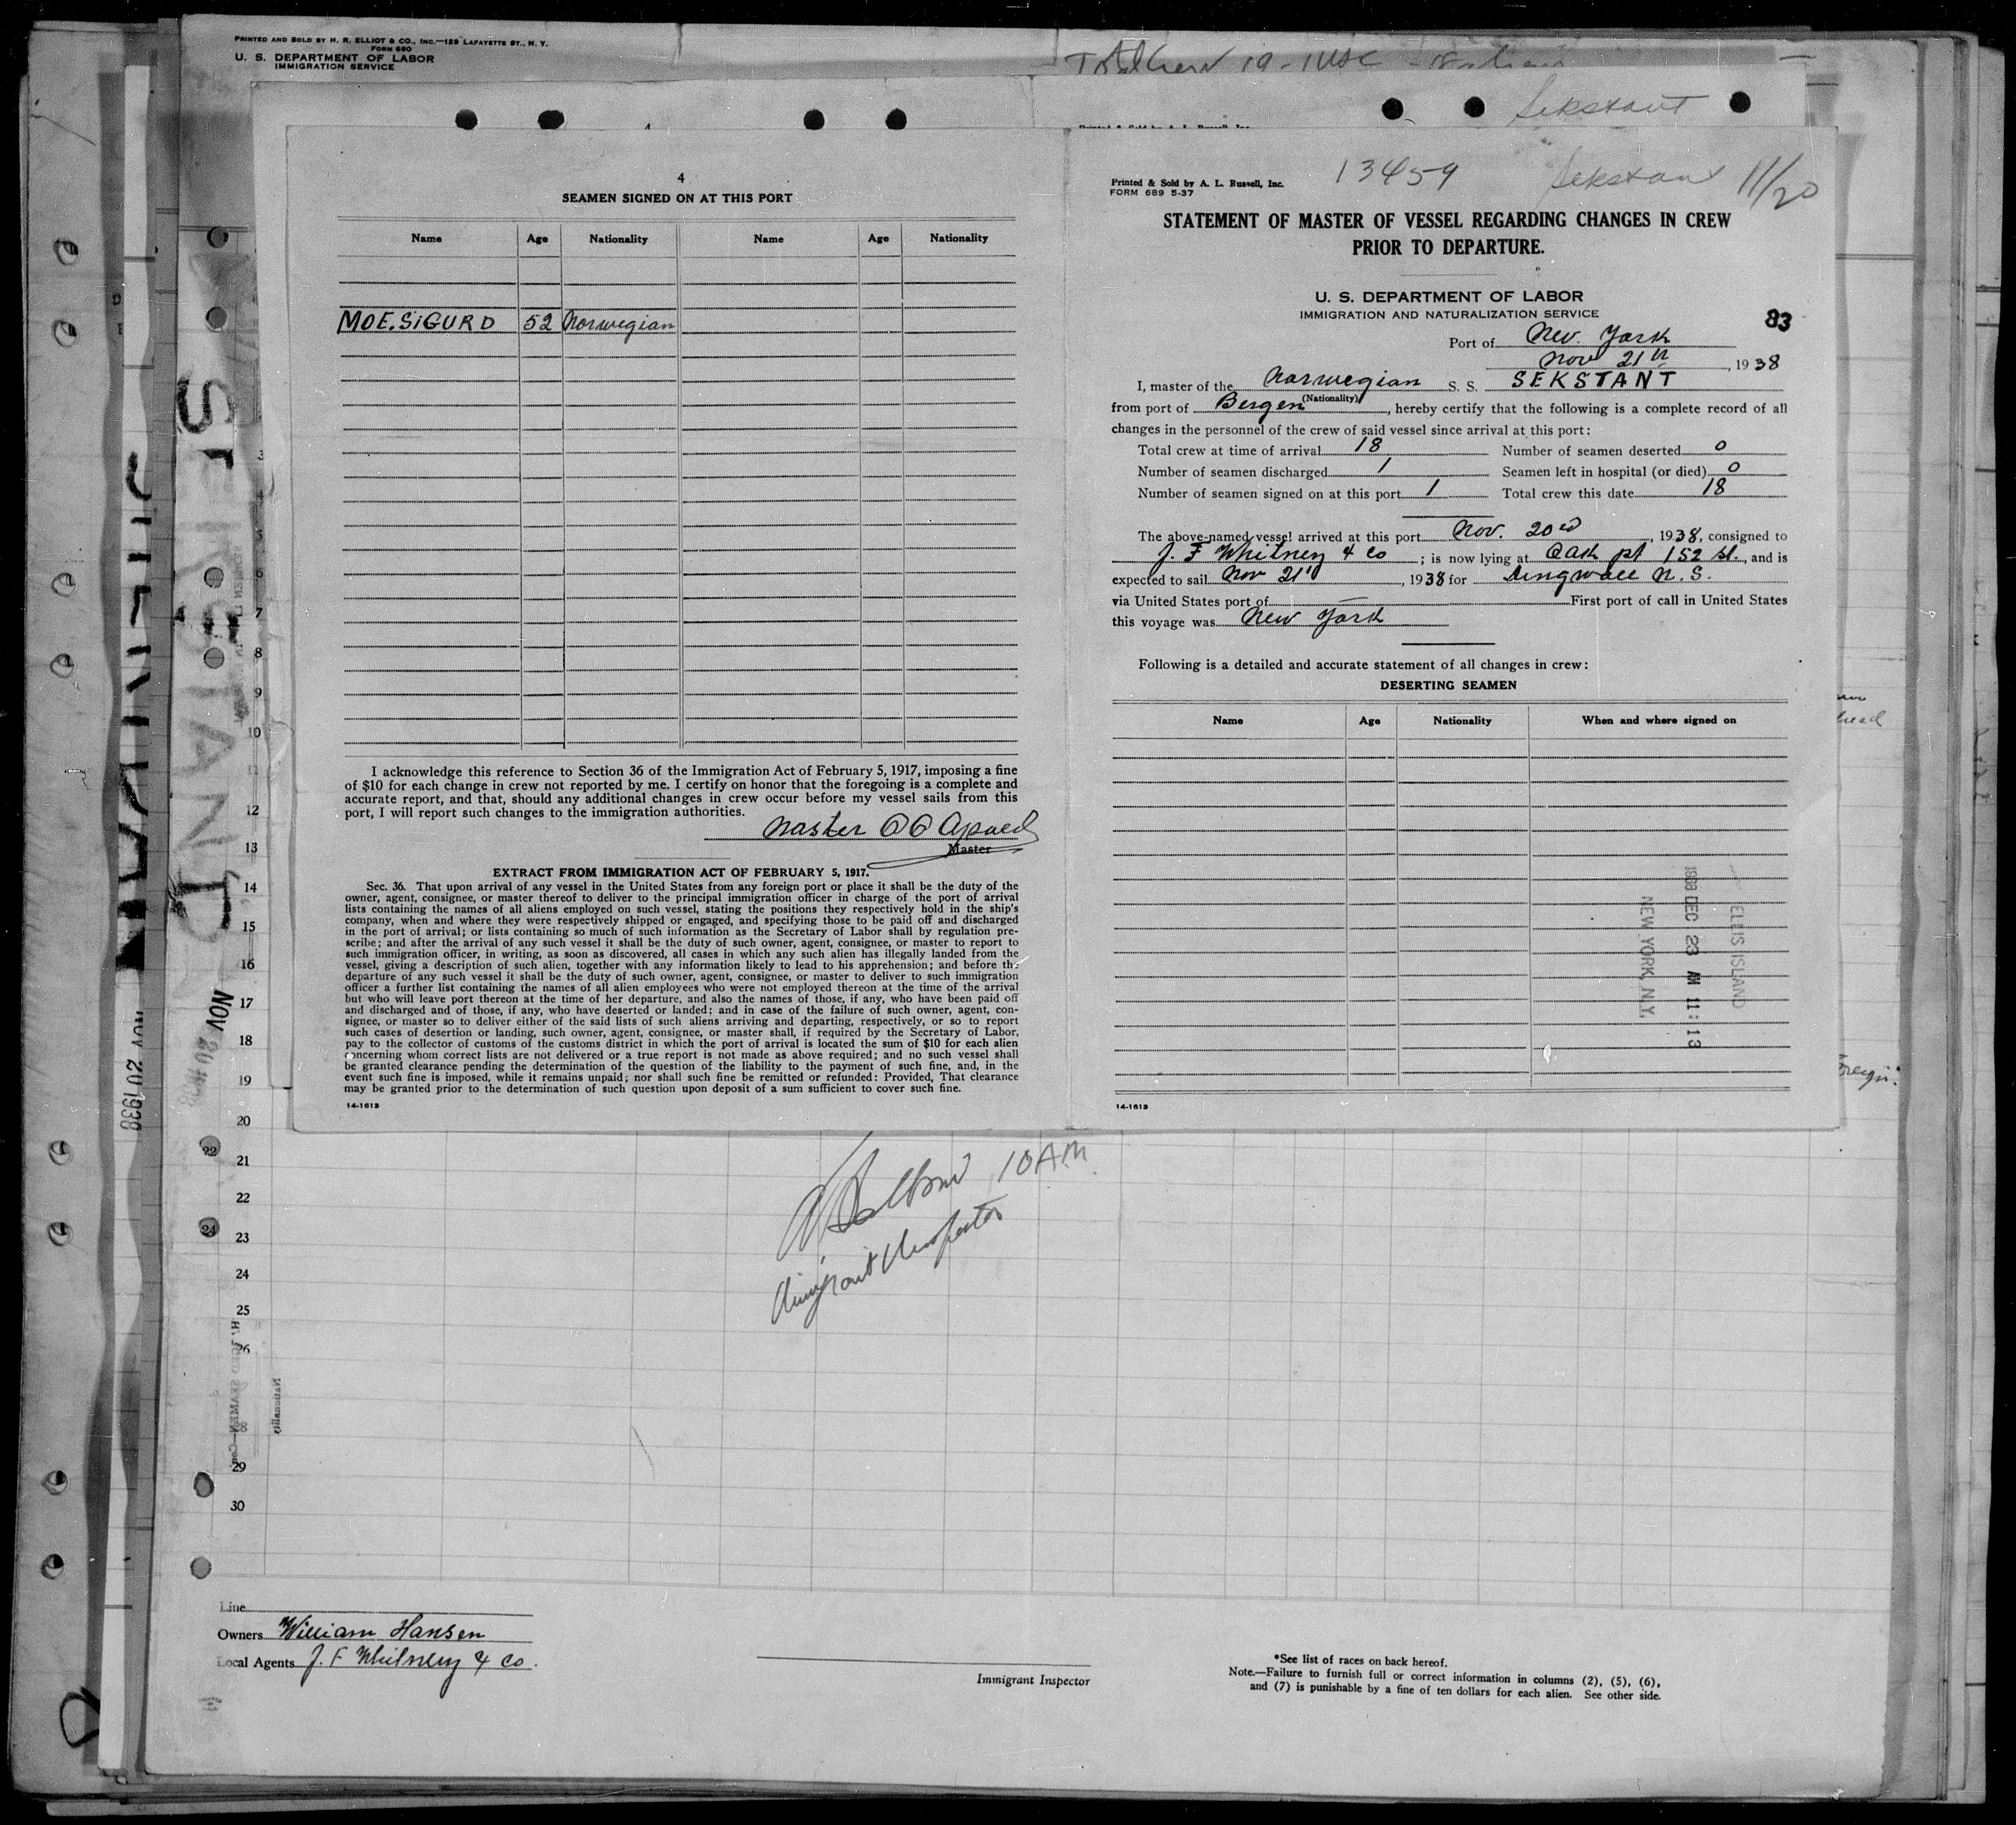 PRINTED AND SOLD BY H. R. ELLIOT & CO., INC.—129 LAFAYETTE ST., N. Y.
FORM 680
U. S. DEPARTMENT OF LABOR
IMMIGRATION SERVICE
Sekstant
4
SEAMEN SIGNED ON AT THIS PORT
Name Age Nationality Name Age Nationality
MOE, SIGURD 52 Norwegian
I acknowledge this reference to Section 36 of the Immigration Act of February 5, 1917, imposing a fine
of $10 for each change in crew not reported by me. I certify on honor that the foregoing is a complete and
accurate report, and that, should any additional changes in crew occur before my vessel sails from this
port, I will report such changes to the immigration authorities.
Master
Master
EXTRACT FROM IMMIGRATION ACT OF FEBRUARY 5, 1917.
Sec. 36. That upon arrival of any vessel in the United States from any foreign port or place it shall be the duty of the
owner, agent, consignee, or master thereof to deliver to the principal immigration officer in charge of the port of arrival
lists containing the names of all aliens employed on such vessel, stating the positions they respectively hold in the ship's
company, when and where they were respectively shipped or engaged, and specifying those to be paid off and discharged
in the port of arrival; or lists containing so much of such information as the Secretary of Labor shall by regulation pre-
scribe; and after the arrival of any such vessel it shall be the duty of such owner, agent, consignee, or master to report to
such immigration officer, in writing, as soon as discovered, all cases in which any such alien has illegally landed from the
vessel, giving a description of such alien, together with any information likely to lead to his apprehension; and before the
departure of any such vessel it shall be the duty of such owner, agent, consignee, or master to deliver to such immigration
officer a further list containing the names of all alien employees who were not employed thereon at the time of the arrival
but who will leave port thereon at the time of her departure, and also the names of those, if any, who have been paid off
and discharged and of those, if any, who have deserted or landed; and in case of the failure of such owner, agent, con-
signee, or master so to deliver either of the said lists of such aliens arriving and departing, respectively, or so to report
such cases of desertion or landing, such owner, agent, consignee, or master shall, if required by the Secretary of Labor,
pay to the collector of customs of the customs district in which the port of arrival is located the sum of $10 for each alien
concerning whom correct lists are not delivered or a true report is not made as above required; and no such vessel shall
be granted clearance pending the determination of the question of the liability to the payment of such fine, and, in the
event such fine is imposed, while it remains unpaid; nor shall such fine be remitted or refunded: Provided, That clearance
may be granted prior to the determination of such question upon deposit of a sum sufficient to cover such fine.
14-1613
Printed & Sold by A. L. Russell, Inc.
FORM 689 5-37
13459 Sekstant 11/20
STATEMENT OF MASTER OF VESSEL REGARDING CHANGES IN CREW
PRIOR TO DEPARTURE.
U. S. DEPARTMENT OF LABOR
IMMIGRATION AND NATURALIZATION SERVICE
83
Port of New York
Nov 21st, 1938
I, master of the Norwegian S. S. SEKSTANT
(Nationality)
from port of Bergen, hereby certify that the following is a complete record of all
changes in the personnel of the crew of said vessel since arrival at this port:
Total crew at time of arrival 18 Number of seamen deserted 0
Number of seamen discharged 1 Seamen left in hospital (or died) 0
Number of seamen signed on at this port 1 Total crew this date 18
The above-named vessel arrived at this port Nov. 20rd, 1938, consigned to
J. F Whitney & Co; is now lying at Oak pt 152 st., and is
expected to sail Nov 21, 1938 for Dingwall N. S.
via United States port of — First port of call in United States
this voyage was New York
Following is a detailed and accurate statement of all changes in crew:
DESERTING SEAMEN
Name Age Nationality When and where signed on
ELLIS ISLAND
1938 DEC 23 AM 11:13
NEW YORK, N.Y.
14-1613
SEKSTANT
NOV 20 1938
NOV 20 1938
3
4
5
6
7
8
9
10
11
12
13
14
15
16
17
18
19
20
21
22
23
24
25
26
28
29
30
22
24
Nationality
10 A.M.
Immigrant Inspector
Line
Owners William Hansen
Local Agents J. F Whitney & Co.
Immigrant Inspector
*See list of races on back hereof.
Note.—Failure to furnish full or correct information in columns (2), (5), (6),
and (7) is punishable by a fine of ten dollars for each alien. See other side.